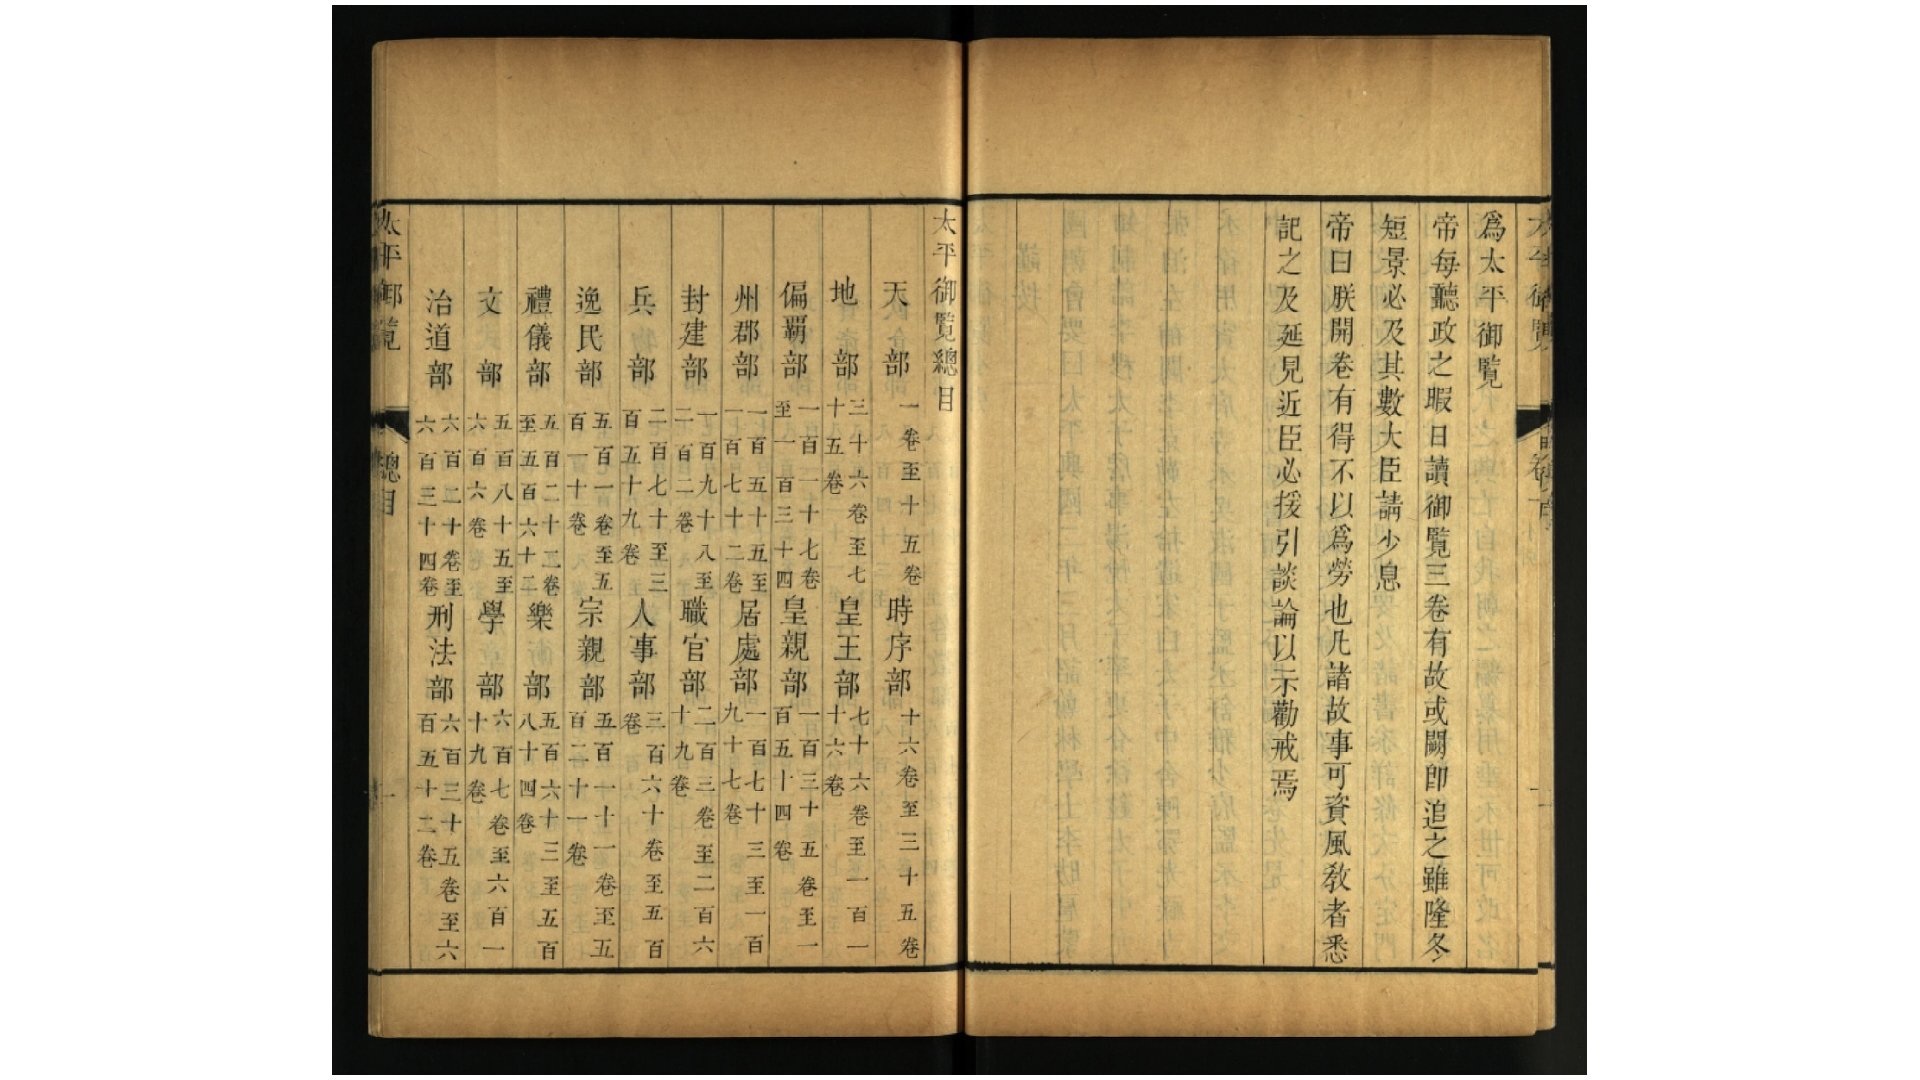 爲太平御覽
帝每聽政之暇日讀御覽三卷有故或闕卽追之雖隆冬
短景必及其數大臣請少息
帝曰朕開卷有得不以爲勞也凡諸故事可資風敎者悉
記之及延見近臣必援引談論以示勸戒焉
太平御覽總目
天部 一卷至十五卷 時序部 十六卷至三十五卷
地部 三十六卷至七十五卷 皇王部 七十六卷至一百一十六卷
偏霸部 一百一十七卷至一百三十四 皇親部 一百三十五卷至一百五十四卷
州郡部 一百五十五至一百七十二卷 居處部 一百七十三至一百九十七卷
封建部 一百九十八至二百二卷 職官部 二百三卷至二百六十九卷
兵部 二百七十至三百五十九卷 人事部 三百六十卷至五百卷
逸民部 五百一卷至五百一十卷 宗親部 五百一十一卷至五百二十一卷
禮儀部 五百二十二卷至五百六十二 樂部 五百六十三至五百八十四卷
文部 五百八十五至六百六卷 學部 六百七卷至六百一十九卷
治道部 六百二十卷至六百三十四卷 刑法部 六百三十五卷至六百五十二卷
太平御覽 總目 一